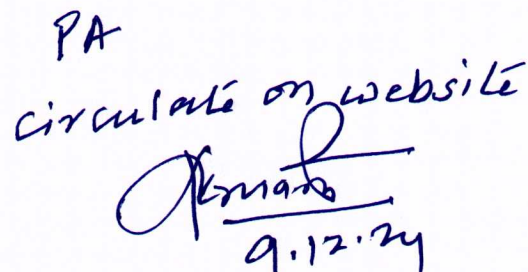 PA
circulate on website
9.12.24